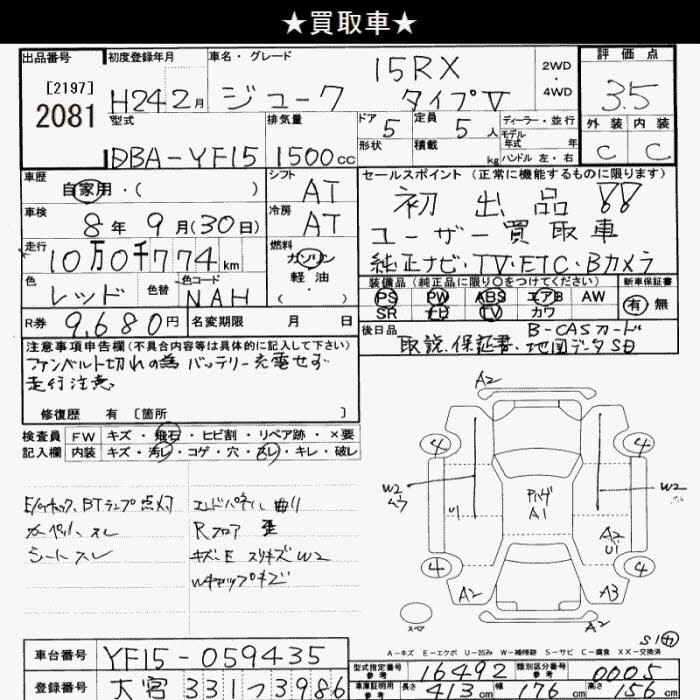 ★買取車★
出品番号 初度登録年月 車名・グレード 評価点
[2197] 15RX 2WD・4WD 3.5
2081 H24 2月 ジューク タイプV
型式 排気量 ドア 5 定員 5人 ディーラー・並行 外装 内装
DBA-YF15 1500cc 形状 積載 kg モデル年式 年 C C
ハンドル 左・右
車歴 自家用・( ) シフト AT セールスポイント (正常に機能するものに限ります)
車検 8年 9月(30日) 冷房 AT 初出品!!
走行 10万0千774km 燃料 ガソリン 軽油 ( ) ユーザー買取車
純正ナビ・TV・ETC・Bカメラ
色 レッド 色替 色コード NAH 装備品(純正品に限り○をつけてください) 新車保証書
PS PW ABS エアB AW 有 無
SR ナビ TV カワ
R券 9,680円 名変期限 月 日 後日品 B-CASカード
取説、保証書、地図データSD
注意事項申告欄(不具合内容等は具体的に記入して下さい)
ファンベルト切れの為 バッテリー充電せず
走行注意
修復歴 有 〔箇所 〕
検査員 FW キズ・飛石・ヒビ割・リペア跡・×要
記入欄 内装 キズ・汚レ・コゲ・穴・スレ・キレ・破レ
E/gチェック、BTランプ点灯 エンドパネル曲り
カーペット スレ Rフロア 歪
シート スレ キズ・E スリキズ W2
Wキャップキズ
A2
4 4
W2 W2
ムラ
U1 A1 A2
U1
4 4
A2 A3
スペア A2
A-キズ E-エクボ U-凹み W-補修跡 S-サビ C-腐食 XX-交換済
車台番号 YF15-059435
型式指定番号 参考 16492 類別区分番号 参考 0005
登録番号 大宮 331つ3986
車庫証明用 参考 長さ 413cm 幅 176cm 高さ 156cm